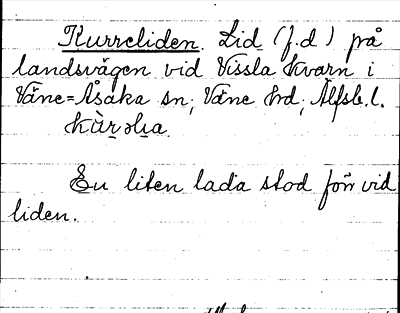 Kurreliden. Lid (f.d) på
landsvägen vid Vissla kvarn i
Väne=Åsaka sn, Väne hd, Älfsb.l.
En liten lada stod förr vid
liden.